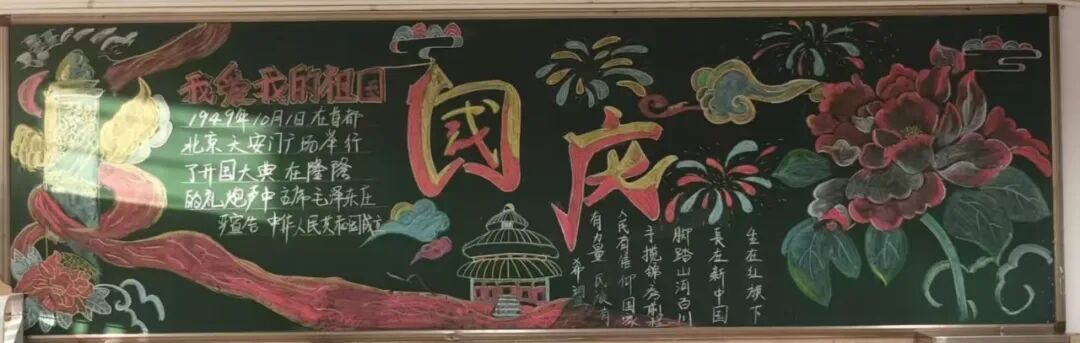 我爱我的祖国
1949年10月1日在首都
北京天安门广场举行
了开国大典 在隆隆
的礼炮声中 主席毛泽东庄
严宣告 中华人民共和国成立
国庆
生在红旗下
長在新中国
脚踏山河百川
手揽锦为前程
人民有信仰 国家
有力量 民族有
希望